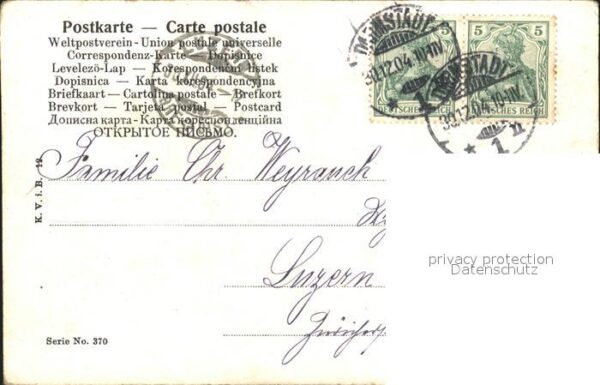 Postkarte — Carte postale
Weltpostverein - Union postale universelle
Correspondenz-Karte - Dopisnice
Levelezö-Lap — Korespondenční listek
Dopisnica — Karta korespondencyjna
Briefkaart - Cartolina postale - Brefkort
Brevkort — Tarjeta postal — Postcard
Дописна карта - Карта кореспонденційна
ОТКРЫТОЕ ПИСЬМО.
5
5
5
DEUTSCHES REICH
DEUTSCHES REICH
30.12.04.
30.12.04.
* 1 n
K. V. i. B. 12
Familie Chr. Weyrauch
Luzern
privacy protection
Datenschutz
Serie No. 370